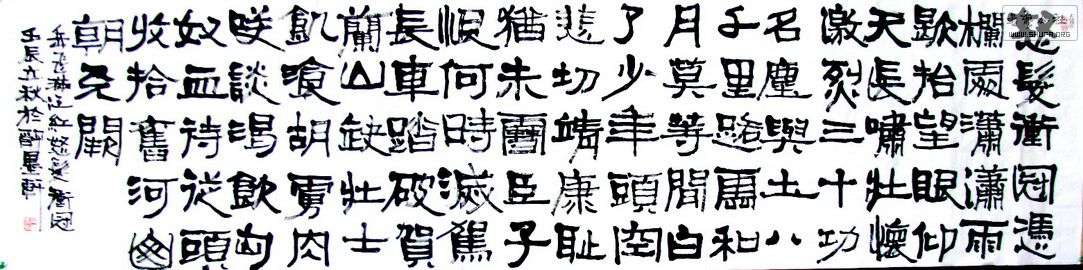 怒髮衝冠憑
欄處瀟瀟雨
歇抬望眼仰
天長嘯壯懷
激烈三十功
名塵與土八
千里路雲和
月莫等閒白
了少年頭空
悲切靖康恥
猶未雪臣子
恨何時滅駕
長車踏破賀
蘭山缺壯士
飢飡胡虜肉
咲談渴飲匈
奴血待從頭
收拾舊河山
朝天闕
岳飛滿江紅怒髮衝冠
壬辰九秋於醉墨軒
WWW.SHUFA.ORG